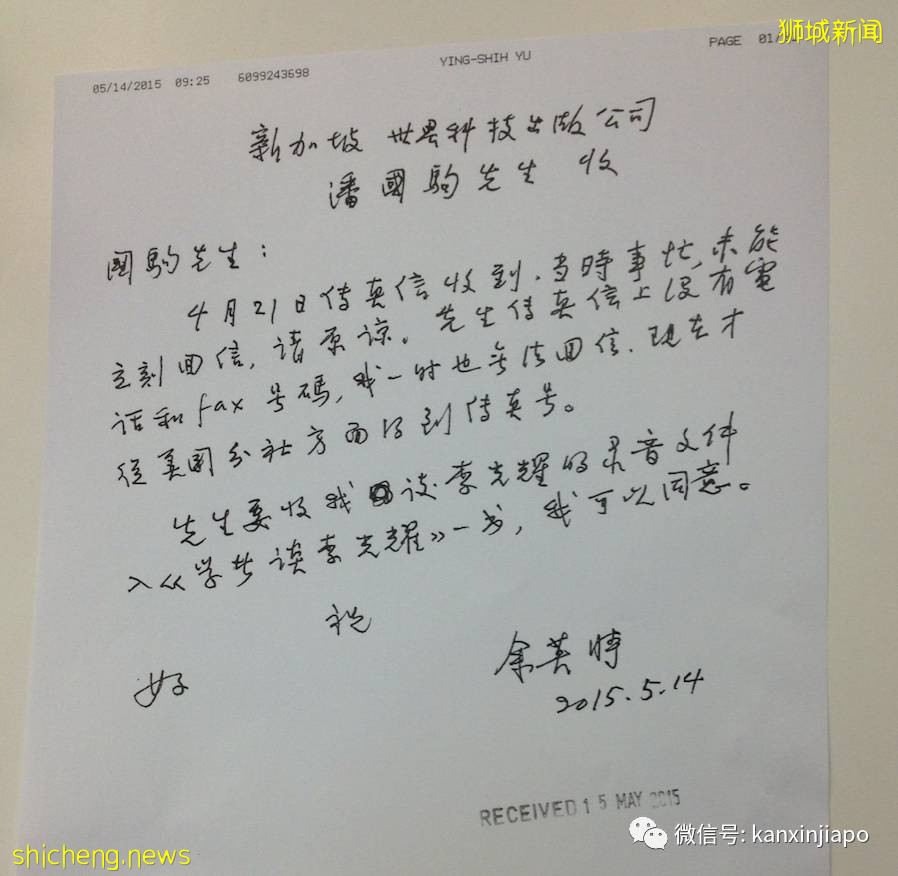 狮城新闻
05/14/2015 09:25 6099243698 YING-SHIH YU PAGE 01/
新加坡 世界科技出版公司
潘國駒先生 收
國駒先生：
4月21日传真信收到.当時事忙,未能
立刻回信,请原谅。先生传真信上没有電
话和fax号碼,我一时也无法回信.现在才
从美国分社方面得到传真号。
先生要收我谈李光耀的录音文件
入《学者谈李光耀》一书,我可以同意。
祝
好
余英時
2015.5.14
RECEIVED 15 MAY 2015
微信号: kanxinjiapo
shicheng.news